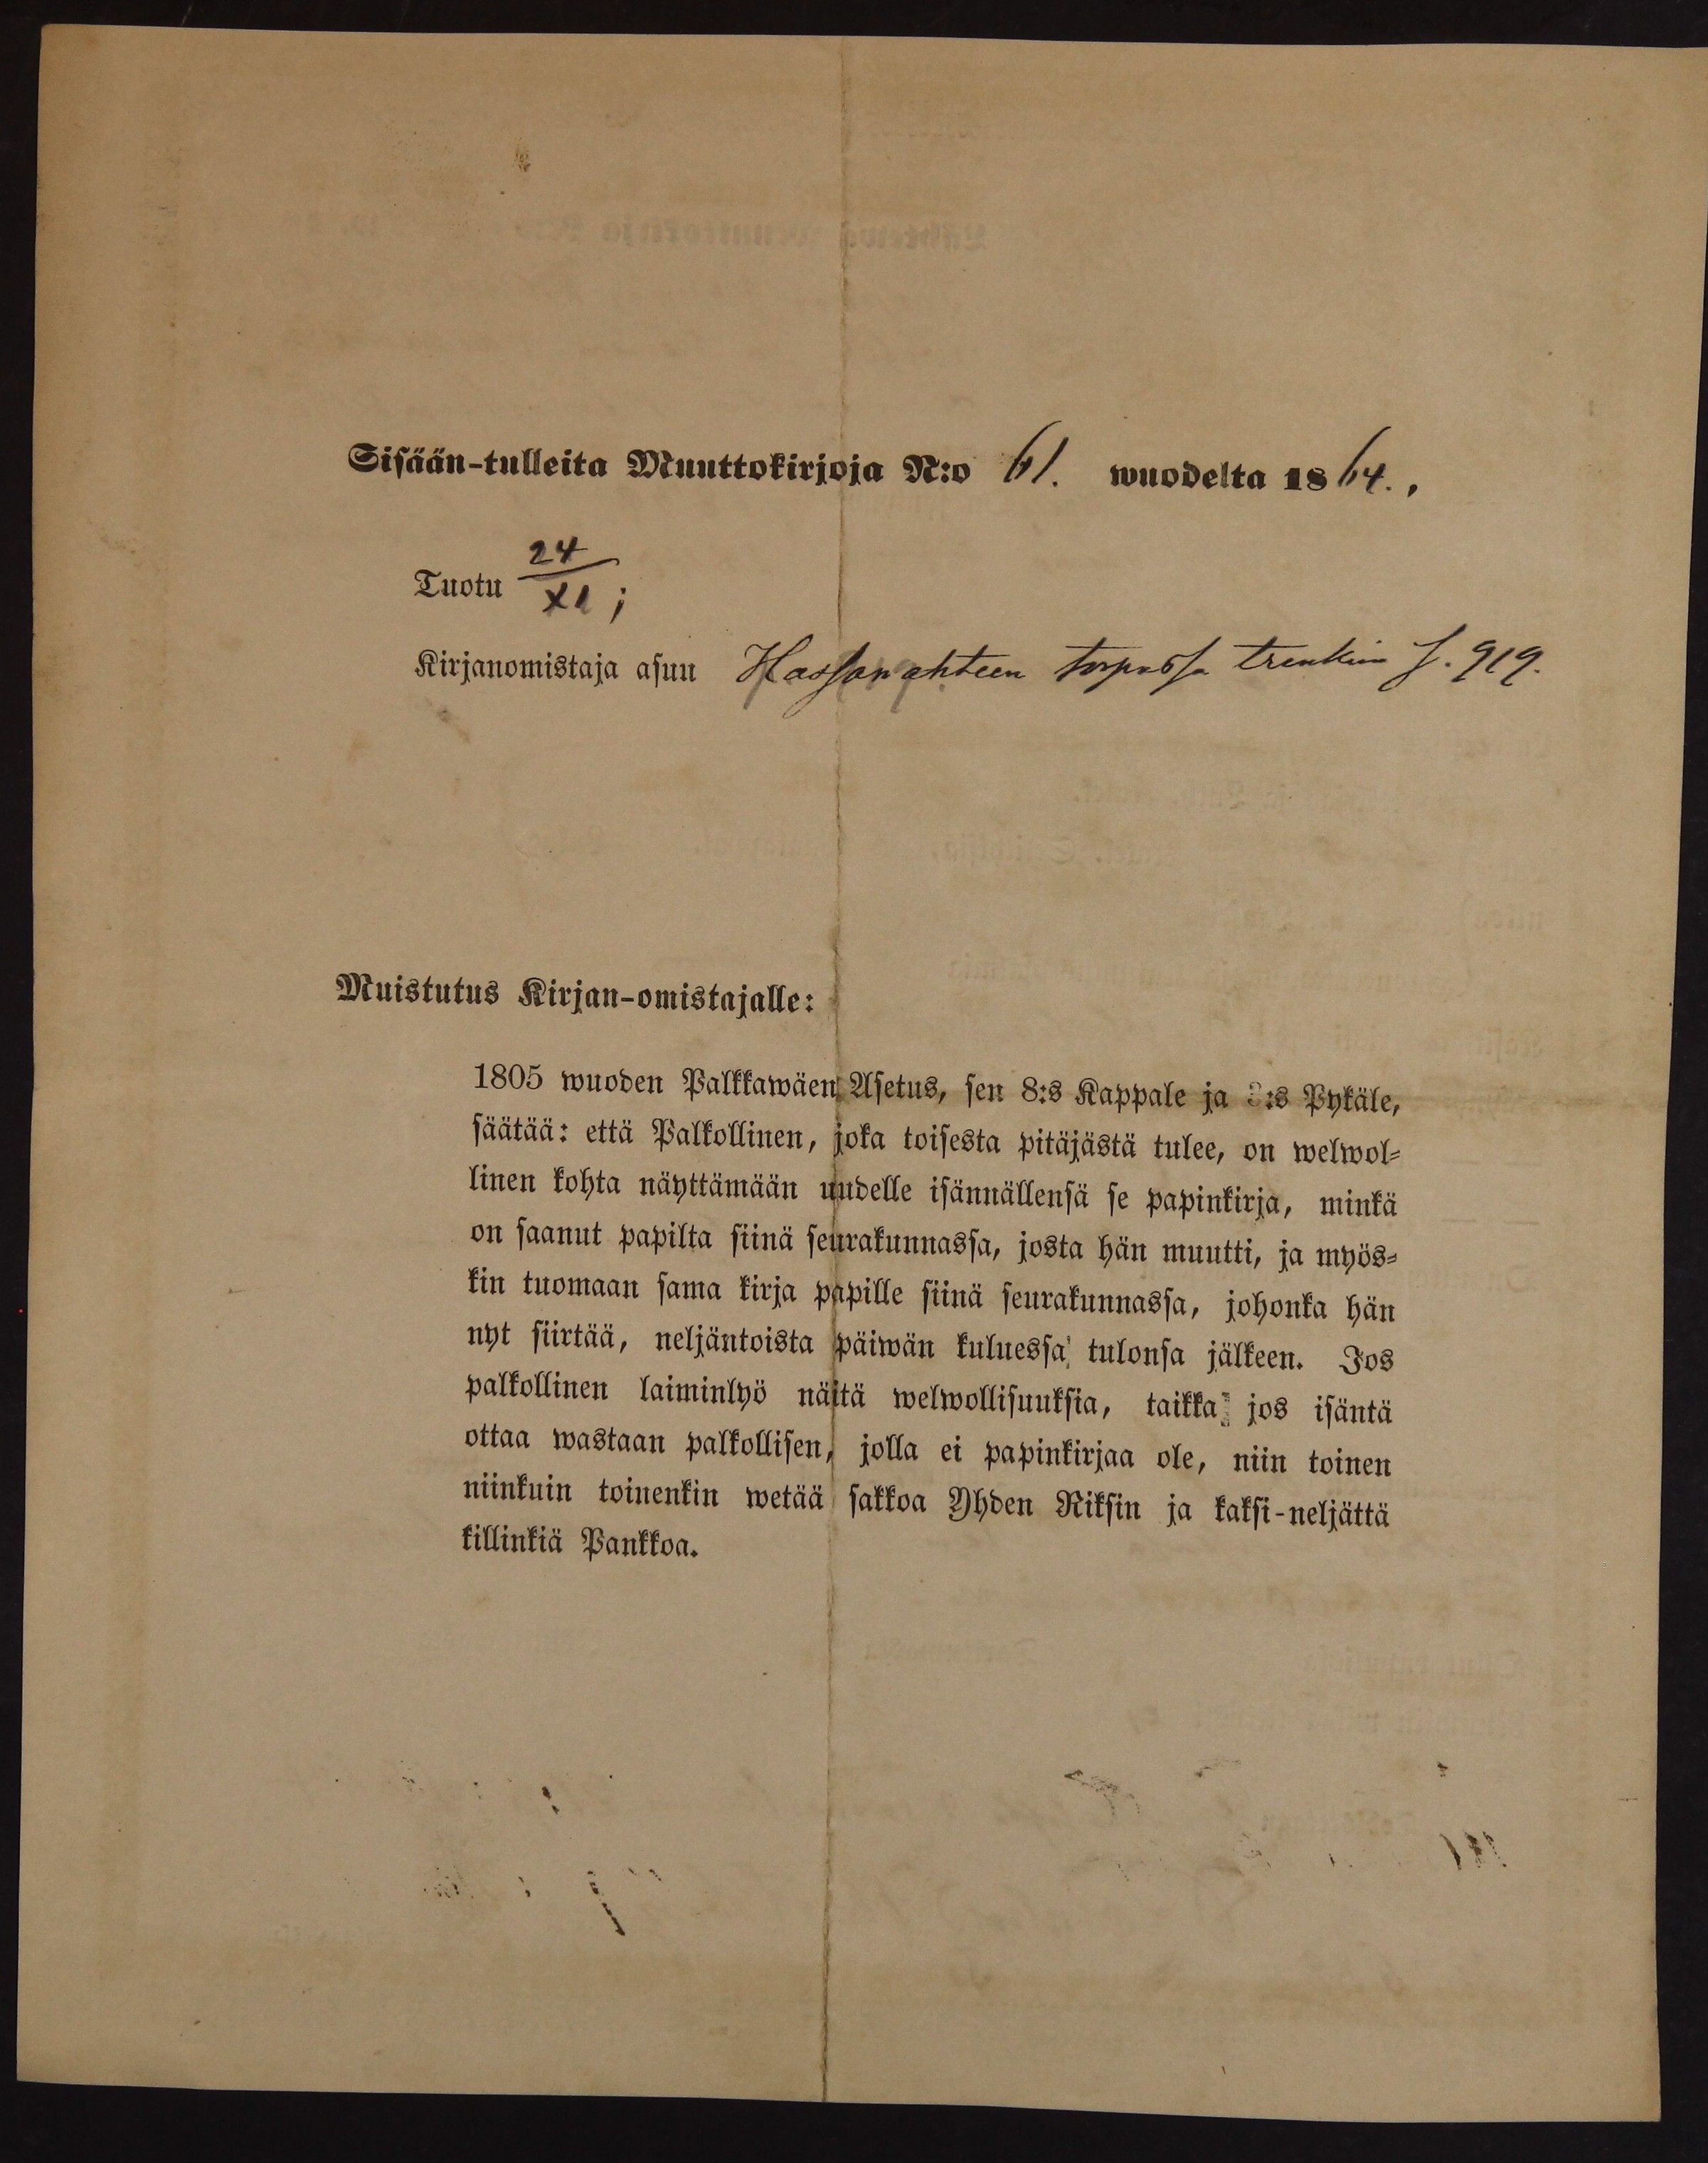 Sisään-tulleita Muuttokirjoja N:o 61. wuodelta 1864.,
Tuotu 24/XI;
Kirjanomistaja asuu Hassanahteen torpassa trenkinä f. 919.
Muistutus Kirjan-omistajalle:
1805 wuoden Palkkawäen Asetus, sen 8:s Kappale ja :s Pykäle,
säätää: että Palkollinen, joka toisesta pitäjästä tulee, on welwol-
linen kohta näyttämään uudelle isännällensä se papinkirja, minkä
on saanut papilta siinä seurakunnassa, josta hän muutti, ja myös-
kin tuomaan sama kirja papille siinä seurakunnassa, johonka hän
nyt siirtää, neljäntoista päiwän kuluessa tulonsa jälkeen. Jos
palkollinen laiminlyö näitä welwollisuuksia, taikka jos isäntä
ottaa wastaan palkollisen, jolla ei papinkirjaa ole, niin toinen
niinkuin toinenkin wetää sakkoa Yhden Riksin ja kaksi-neljättä
killinkiä Pankkoa.